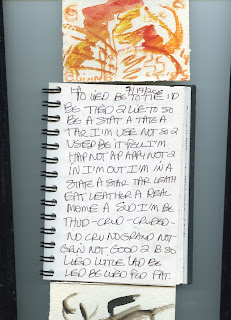 9/17/2008
TO LIED BE TO THE I'D
BE TIED 2 WE TO SO
BE A STAT A TATE A
TAR I'M USE NOT SO 2
USED BE IT FELL I'M
HAP NOT AP APPY NOT 2
IN I'M OUT I'M IN A
STATE A STAR TAR LEATH
EAT LEATHER A REAL
MEME A SUD I'M BE
THUD - CRUD - CRUBED -
NO CRU NO GRAND NOT
GRAN NOT GOOD 2 B SO
LIED LITTLE I'D BE
LED BE WED FED FAT.